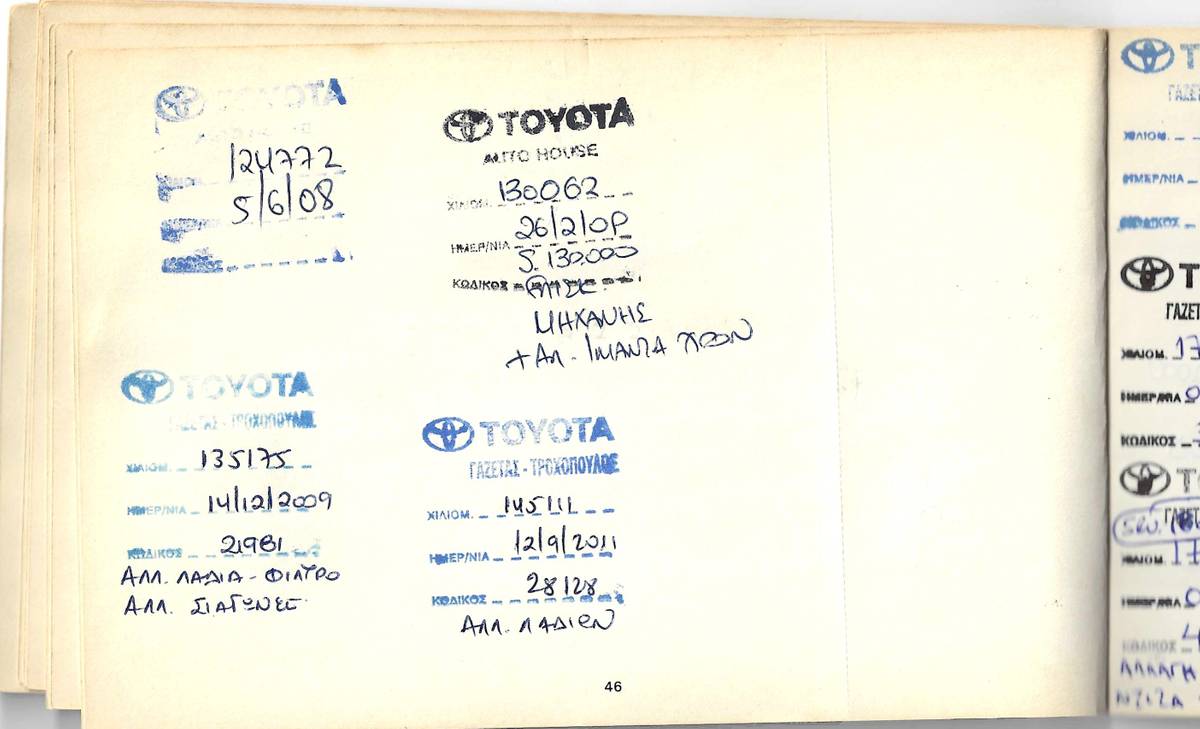 TOYOTA
124772
5/6/08
TOYOTA
AUTO HOUSE
ΧΙΛΙΟΜ. 130062
ΗΜΕΡ/ΝΙΑ 26/2/09
S. 130.000
ΚΩΔΙΚΟΣ
ΜΗΧΑΝΗΣ
+ ΑΛ. ΙΜΑΝΤΑ
TOYOTA
ΓΑΖΕΤΑΣ - ΤΡΟΧΟΠΟΥΛΟΣ
ΧΙΛΙΟΜ. 135175
ΗΜΕΡ/ΝΙΑ 14/12/2009
ΚΩΔΙΚΟΣ 21981
ΑΛΛ. ΛΑΔΙΑ - ΦΙΛΤΡΟ
ΑΛΛ. ΣΙΑΓΩΝΕΣ
TOYOTA
ΓΑΖΕΤΑΣ - ΤΡΟΧΟΠΟΥΛΟΣ
ΧΙΛΙΟΜ. 145111
ΗΜΕΡ/ΝΙΑ 12/9/2011
ΚΩΔΙΚΟΣ 28128
ΑΛΛ. ΛΑΔΙΩΝ
46
ΧΙΛΙΟΜ.
ΗΜΕΡ/ΝΙΑ
ΚΩΔΙΚΟΣ
ΧΙΛΙΟΜ. 17
ΗΜΕΡ/ΝΙΑ 0
ΚΩΔΙΚΟΣ
ΧΙΛΙΟΜ. 17
ΗΜΕΡ/ΝΙΑ 0
ΚΩΔΙΚΟΣ 4
ΑΛΛΑΓΗ